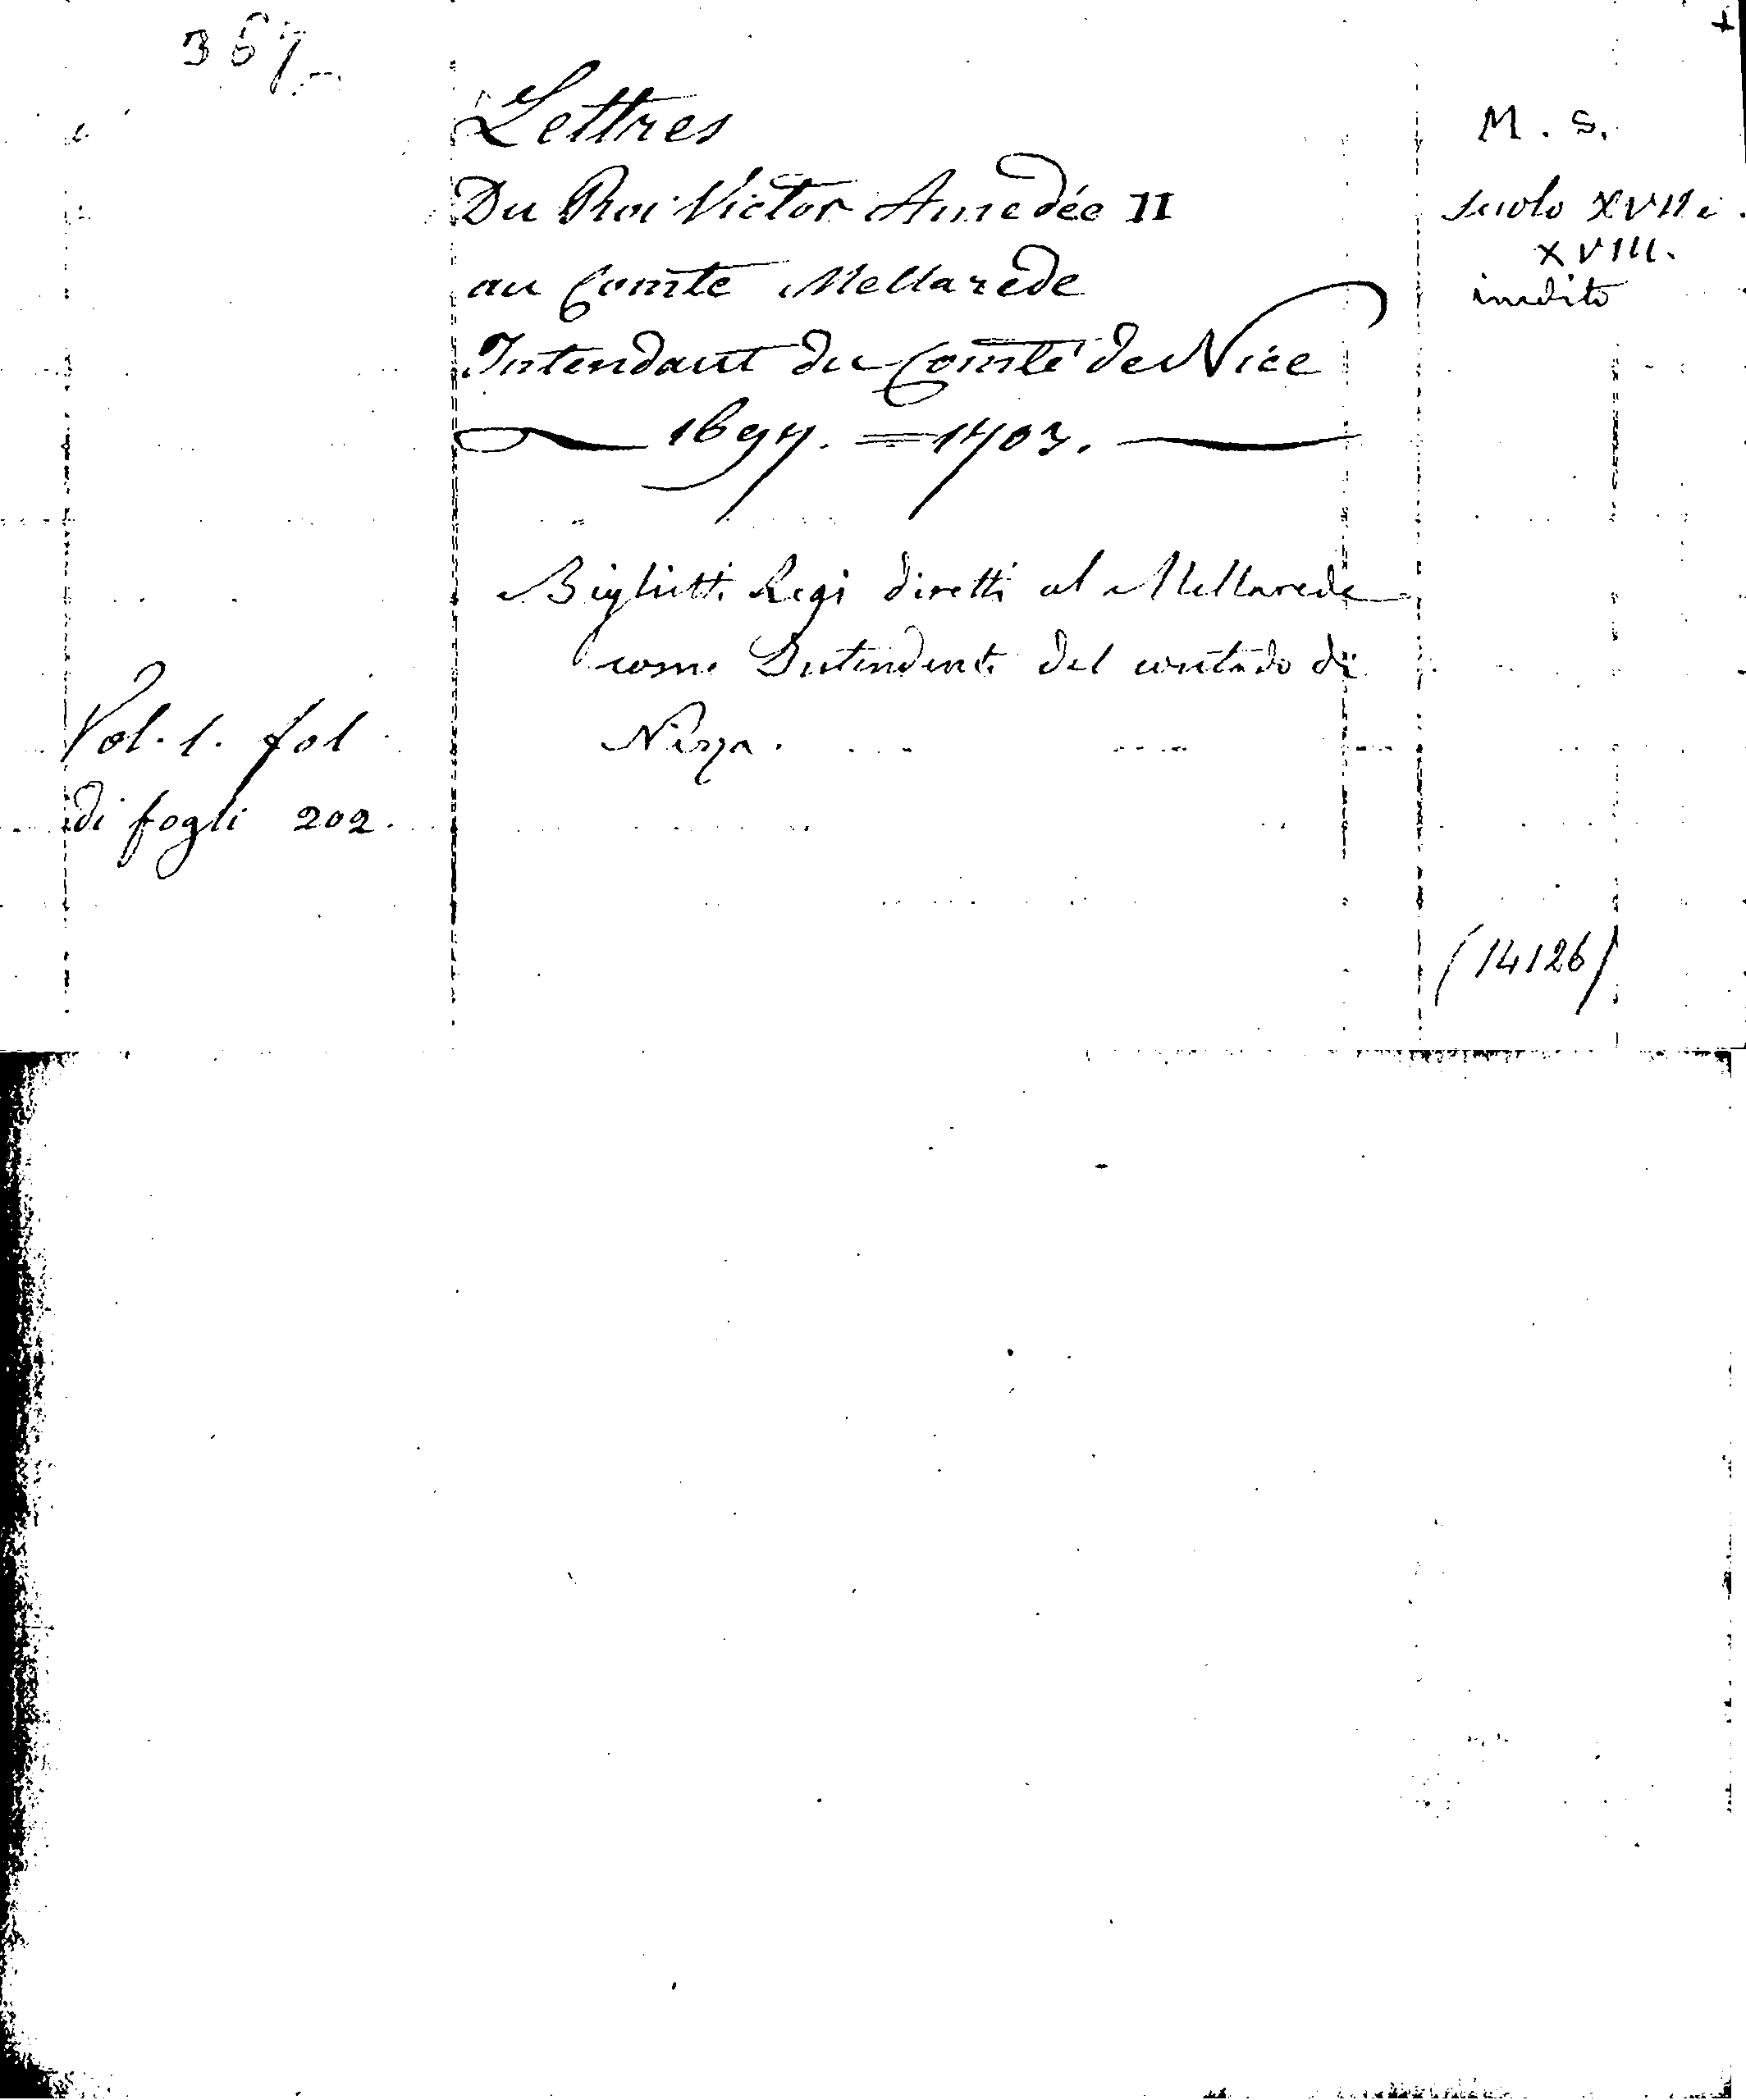 367
Lettres
Du Roi Victor Amedée II
au Comte Mellarede
Intendant du Comté de Nice
1697. = 1703.
Biglietti Regi diretti al Mellarede
come Intendente del contado di
Nizza.
Vol. 1. fol
di fogli 202.
+
M. S.
secolo XVII e
XVIII.
inedito
(14126)